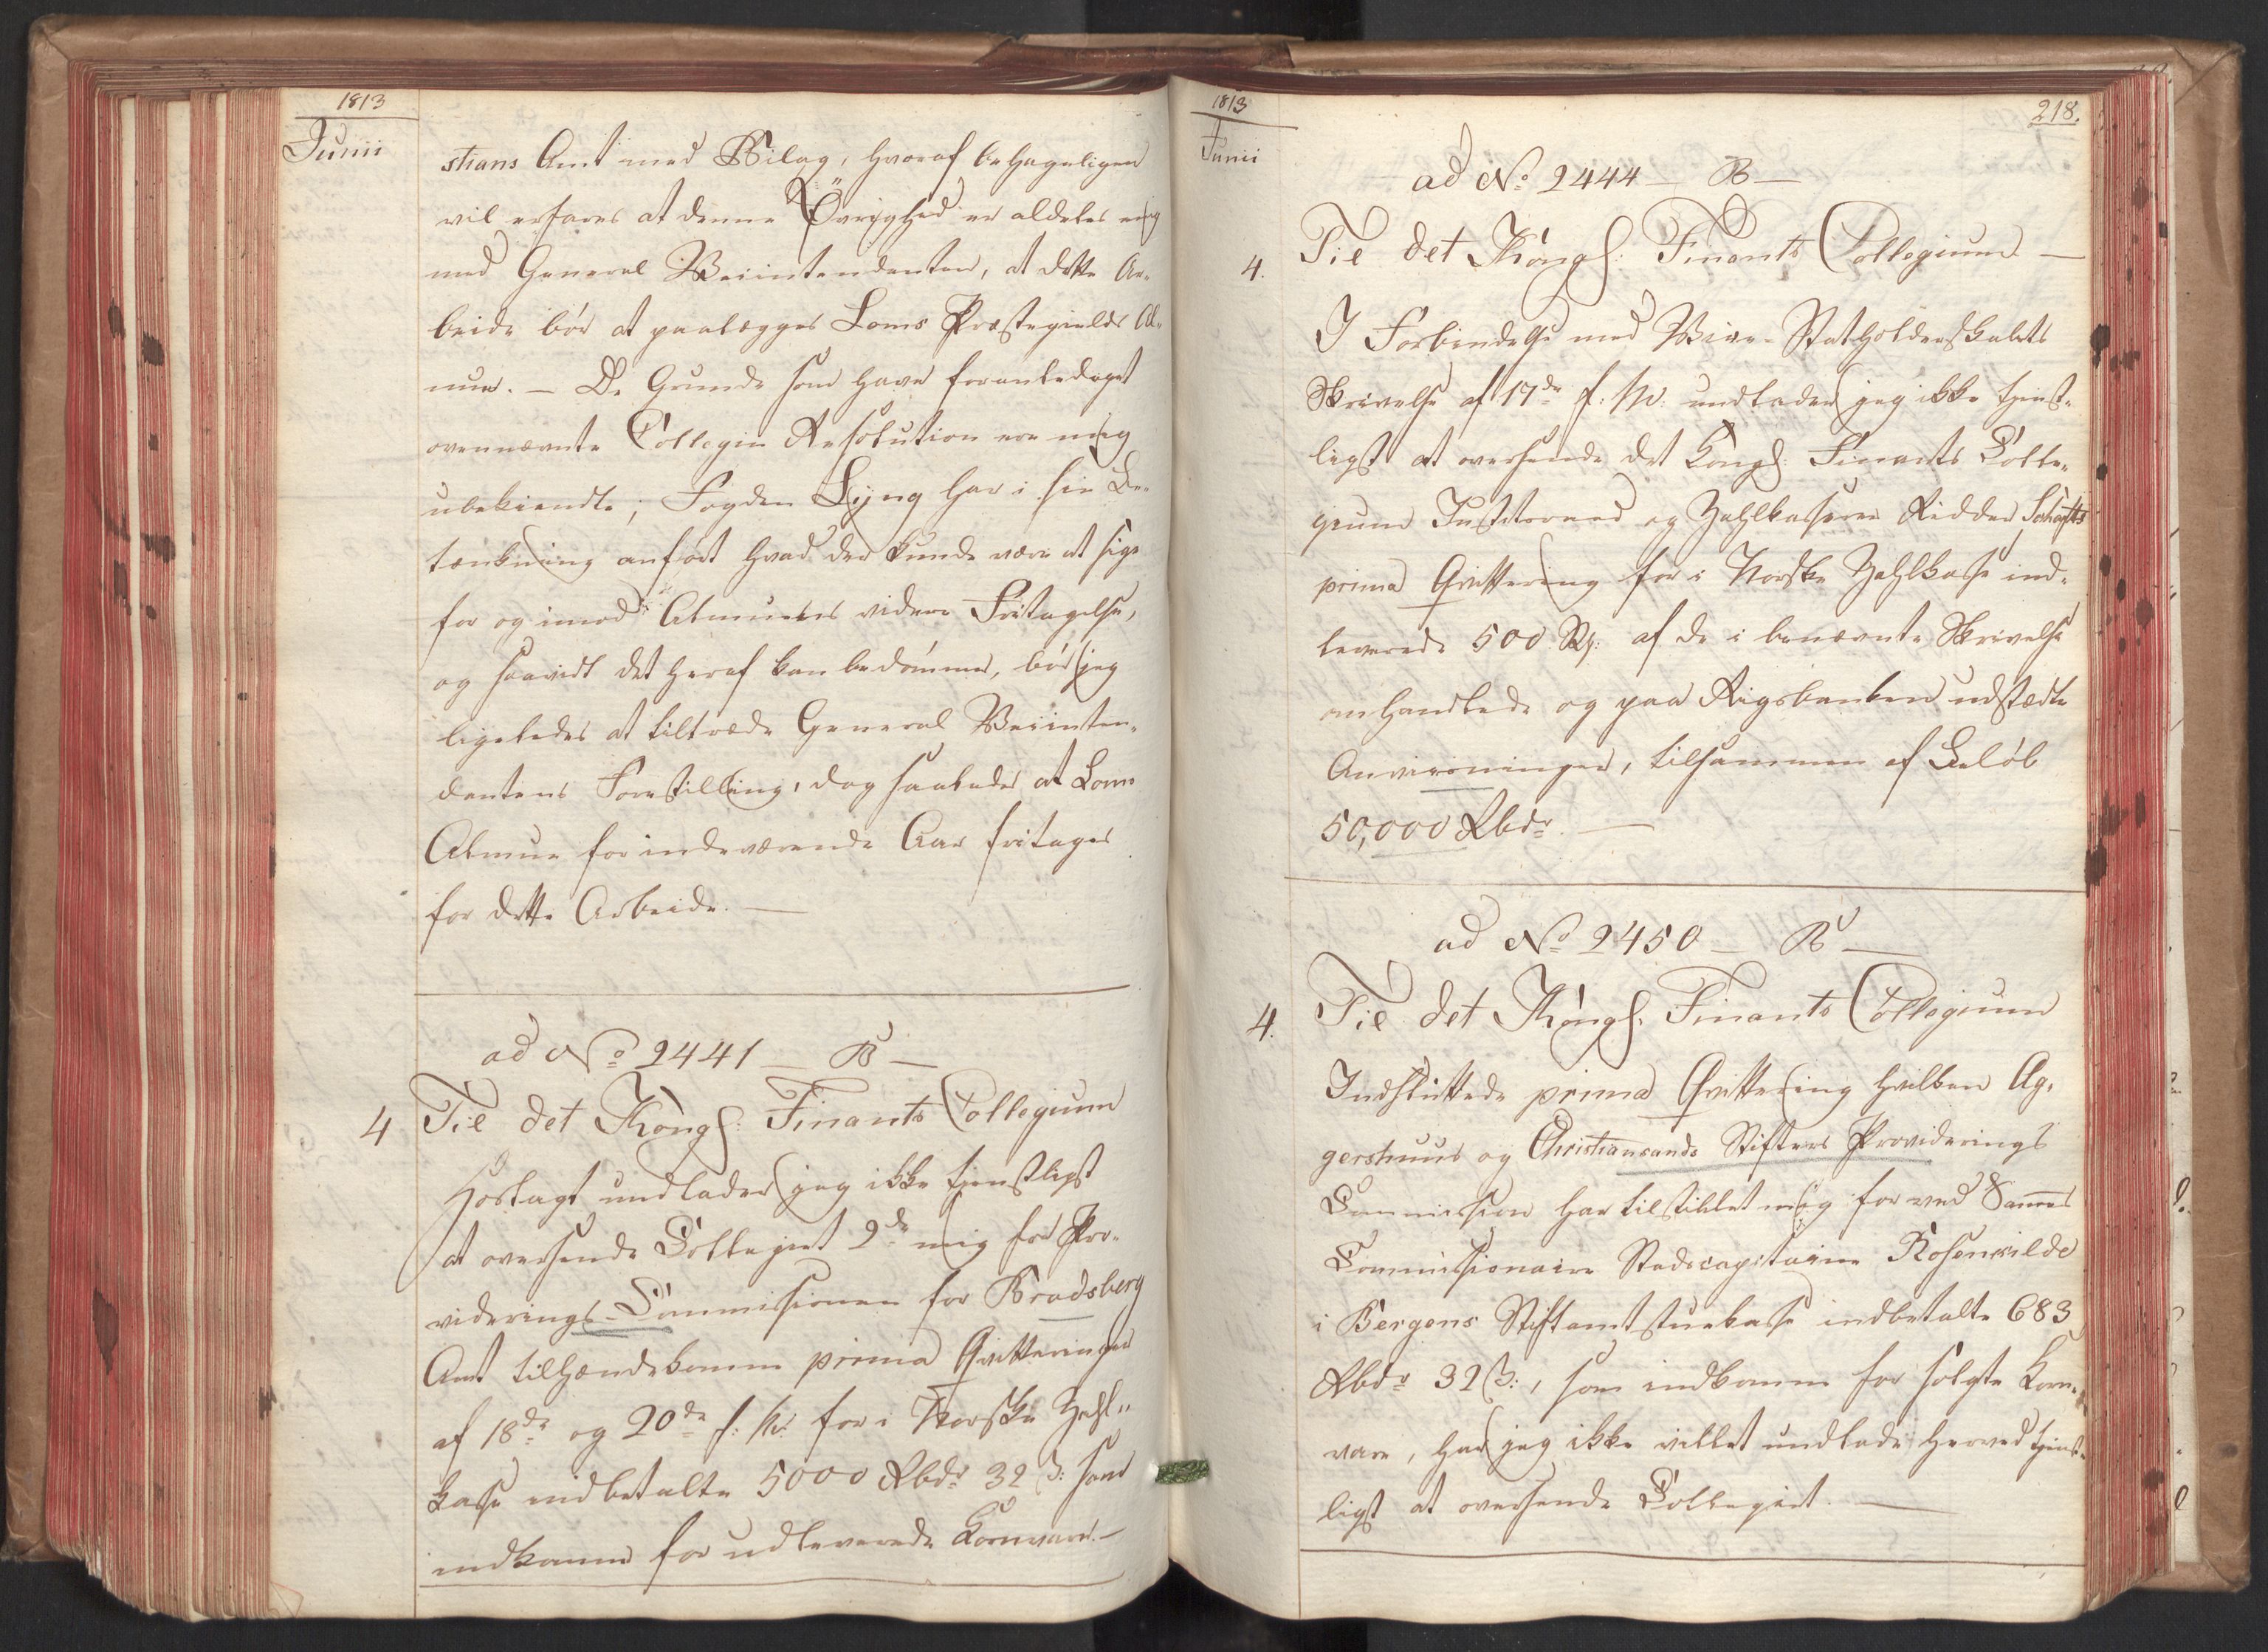 1813
Junii
stians Amt med Bilag, hvoraf behageligen
vil erfares at denne Øvrighed er aldeles enig
med General Veiintendanten, at dette Ar-
beide bør at paalægges Loms Præstegields Al-
mue. — De Grunde som have foranlediget
ovennævnte Collegii Resolution ere mig
ubekiendte; Fogden Lyng har i sin Be-
tænkning anført hvad der kunde være at sige
for og imod Almuens videre Fritagelse,
og saavidt det heraf kan bedømmes, bør jeg
ligeledes at tiltræde General Veiinten-
dantens Forestilling, dog saaledes at Loms
Almue for indeværende Aar fritages
for dette Arbeide. —
ad No 2441 — B —
4 Til det Kongl: Finants Collegium
Hoslagt undlader jeg ikke tjenstligst
at oversende Collegiet 2de mig fra Pro-
viderings-Commissionen for Bradsberg
Amt tilhændekomne prima Qvitteringer
af 18de og 20de f: M: for i Norske Zahl-
kasse indbetalte 5000 Rbdr 32 s: som
indkomne for udleverede Kornvarer. —
1813
Junii
218.
ad No 2444 — B —
4. Til det Kongl: Finants Collegium —
I Forbindelse med Vice-Statholderskabets
Skrivelse af 17de f: M: undlader jeg ikke tjenst-
ligst at oversende det Kongl: Finants Colle-
gium Justitsraad og Zahlkasserer Ridder
prima Qvittering for i Norske Zahlkasse ind-
leverede 500 af de i benævnte Skrivelse
omhandlede og paa Rigsbanken udstædte
Anviisninger, tilsammen af Beløb
50,000 Rbdr. —
ad No 2450 — B —
4. Til det Kongl: Finants Collegium
Indsluttede prima Qvittering hvilken Ag-
gershuus og Christiansands Stifters Providerings
Commission har tilstillet mig for ved Sammes
Commissionaire Stadscapitaine Rosenkilde
i Bergens Stiftamtstuekasse indbetalte 683
Rbdr 32 s:, som indkomne for solgte Korn-
vare, har jeg ikke villet undlade herved tjenst-
ligst at oversende Collegiet. —